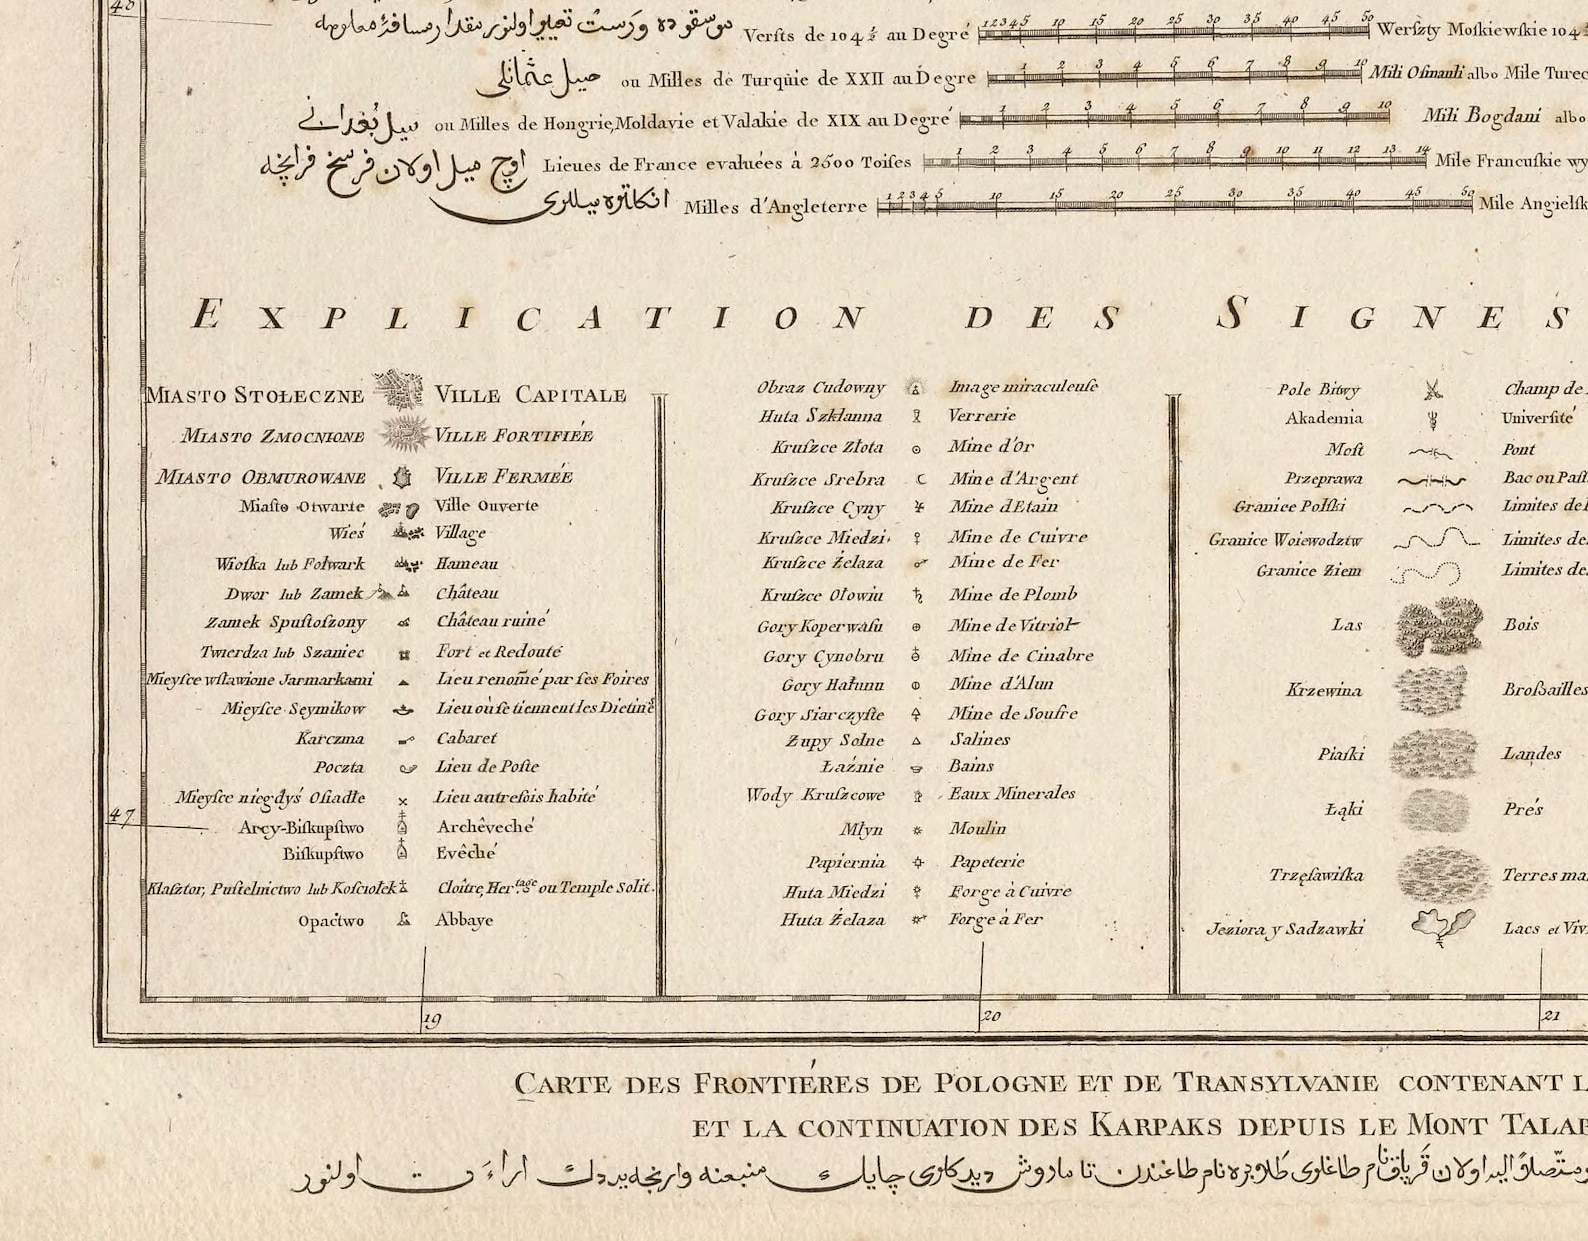 48
موسقوده ورست تعبير اولنور مقدار مسافهٔ معلومه Versts de 104 ½ au Degré 1 2 3 4 5 10 15 20 25 30 35 40 45 50 Werſzty Moſkiewſkie 104
ميل عثمانلى ou Milles de Turquie de XXII au Degre 1 2 3 4 5 6 7 8 9 10 Mili Oſmanli albo Mile Turec
ميل بُغدانى ou Milles de Hongrie, Moldavie et Valakie de XIX au Degré 1 2 3 4 5 6 7 8 9 10 Mili Bogdani albo
اوچ ميل اولان فرسخ فرانچه Lieues de France evaluées à 2500 Toiſes 1 2 3 4 5 6 7 8 9 10 11 12 13 14 Mile Francuſkie wy
انكلتره ميللرى Milles d'Angleterre 1 2 3 4 5 10 15 20 25 30 35 40 45 50 Mile Angielſk
EXPLICATION DES SIGNES
MIASTO STOŁECZNE VILLE CAPITALE
MIASTO ZMOCNIONE VILLE FORTIFIÉE
MIASTO OBMUROWANE VILLE FERMÉE
Miaſto Otwarte Ville Ouverte
Wieś Village
Wioſka lub Folwark Hameau
Dwor lub Zamek Château
Zamek Spuſtoſzony Château ruiné
Twierdza lub Szaniec Fort et Redouté
Mieyſce wſławione Jarmarkami Lieu renom̃é par ſes Foires
Mieyſce Seymikow Lieu où ſe tiennent les Dietinẽ
Karczma Cabaret
Poczta Lieu de Poſte
Mieyſce niegdyś Oſiadłe Lieu autrefois habité
47
Arcy-Biſkupſtwo Archêveché
Biſkupſtwo Evêché
Klaſztor, Puſtelnictwo lub Kościołek Cloître, Her.tage ou Temple Solit.
Opactwo Abbaye
Obraz Cudowny Image miraculeuſe
Huta Szklanna Verrerie
Kruſzce Złota Mine d'Or
Kruſzce Srebra Mine d'Argent
Kruſzce Cyny Mine d'Etain
Kruſzce Miedzi Mine de Cuivre
Kruſzce Żelaza Mine de Fer
Kruſzce Ołowiu Mine de Plomb
Gory Koperwaſu Mine de Vitriol
Gory Cynobru Mine de Cinabre
Gory Hałunu Mine d'Alun
Gory Siarczyſte Mine de Soufre
Żupy Solne Salines
Łaźnie Bains
Wody Kruſzcowe Eaux Minerales
Młyn Moulin
Papiernia Papeterie
Huta Miedzi Forge à Cuivre
Huta Żelaza Forge à Fer
Pole Bitwy Champ de
Akademia Univerſité
Moſt Pont
Przeprawa Bac ou Paſſ
Granice Polſki Limites de
Granice Woiewodztw Limites de
Granice Ziem Limites de
Las Bois
Krzewina Broßailles
Piaſki Landes
Łąki Prés
Trzęſawiſka Terres ma
Jeziora y Sadzawki Lacs et Viv
19 20 21
CARTE DES FRONTIÉRES DE POLOGNE ET DE TRANSYLVANIE CONTENANT L
ET LA CONTINUATION DES KARPAKS DEPUIS LE MONT TALAB
اولان قرپاق نام طاغلرى طلابره نام طاغندن تا مادوش ديدكلرى چايك منبعنه وارنجه يه دك اراءت اولنور